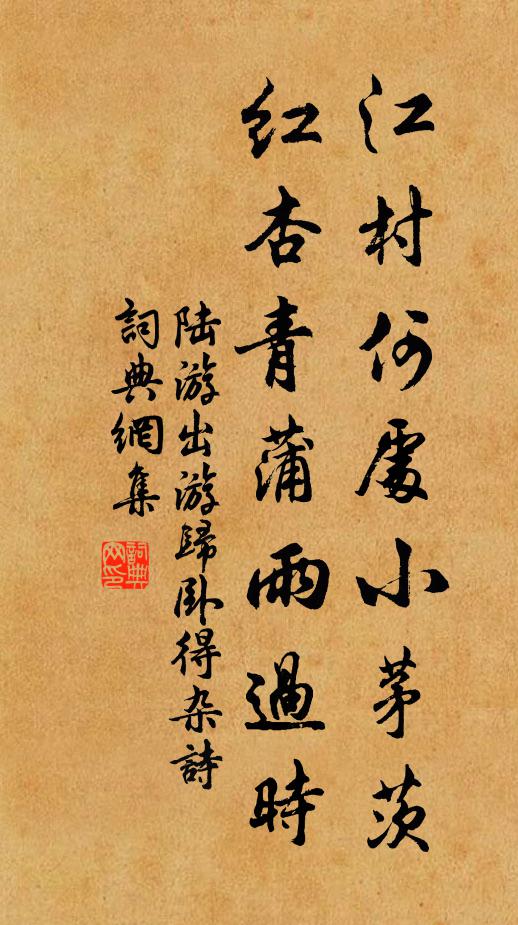 江村何處小茅茨
紅杏青蒲雨過時
陆游出游歸卧得杂詩
詞典網集
詞典网印